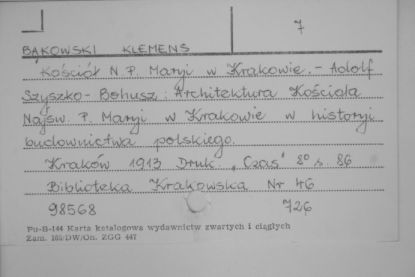 7
BĄKOWSKI KLEMENS
Kościół N. P. Maryi w Krakowie. - Adolf
Szyszko-Bohusz: Architektura Kościoła
Najśw. P. Maryi w Krakowie w historyi
budownictwa polskiego.
Kraków 1913 Druk. "Czas" 8° s. 86
Biblioteka Krakowska Nr 46
98568 726
Pu-B-144 Karta katalogowa wydawnictw zwartych i ciągłych
Zam. 165/DW/On. ZGG 447